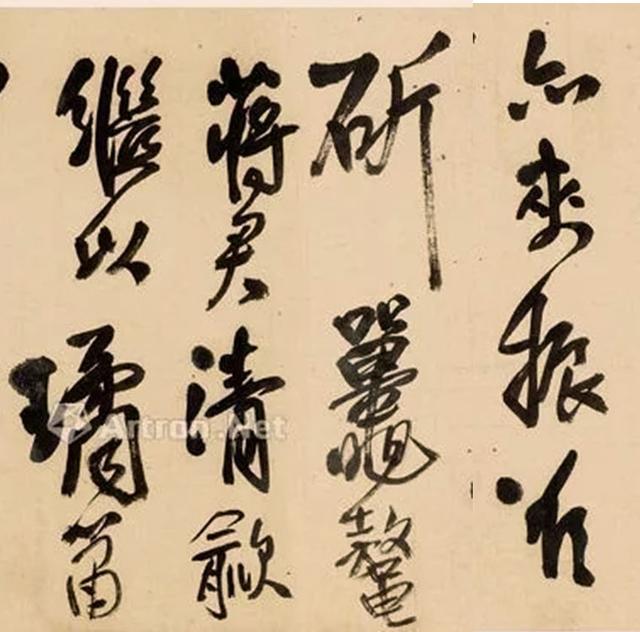 來振
斫鼉鼇
蔣君清歈
繼以璚笛
Artron.Net